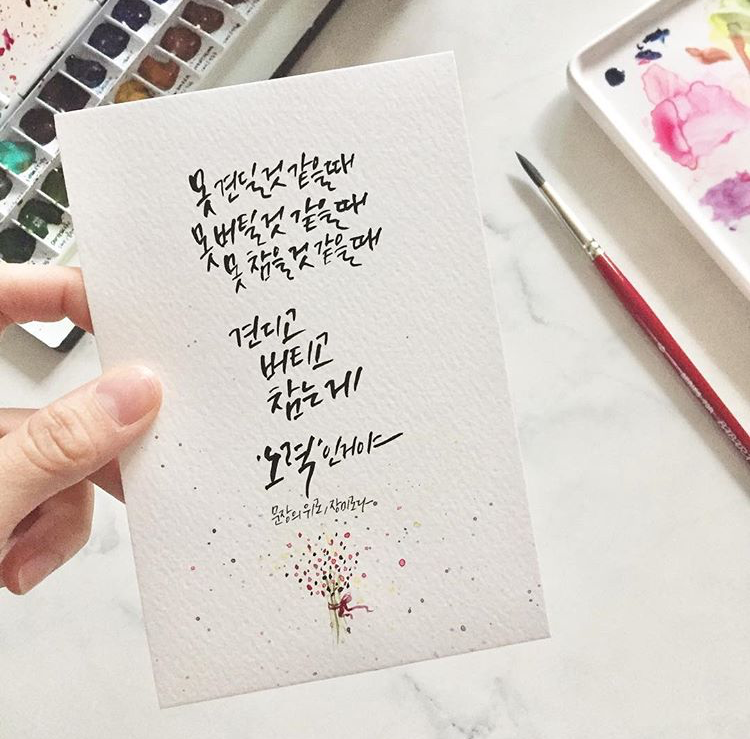 못 견딜것 같을때
못 버틸것 같을때
못 참을것 같을때
견디고
버티고
참는게
'노력'인거야
문장의 위로, 장미로다.